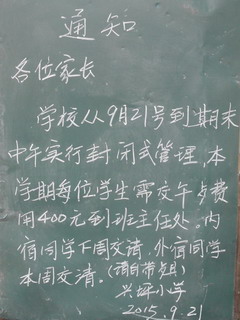 通知
各位家长
学校从9月21号到期末
中午实行封闭式管理，本
学期每位学生需交午餐费
用400元到班主任处。内
宿同学下周交清，外宿同学
本周交清。（请自带碗）
兴坪小学
2015.9.21